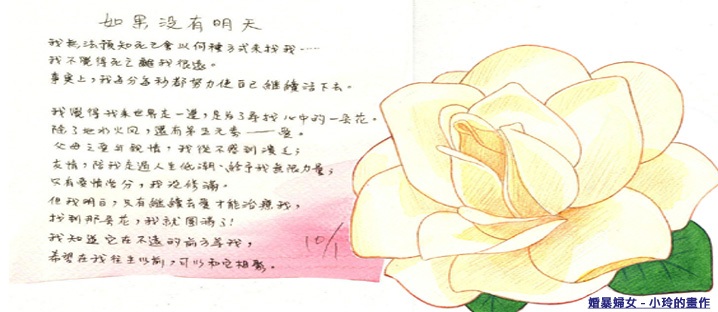 如果没有明天
我無法預知死亡會以何種方式來找我……
我不覺得死亡離我很遠。
事實上，我每分每秒都努力使自己繼續活下去。
我覺得我來世界走一遭，是為了尋找心中的一朵花。
除了地水火風，還有第五元素——愛。
父母之愛與親情，我從不感到匱乏；
友情，陪我走過人生低潮、給予我無限力量；
只有愛情學分，我沒修滿。
但我明白，只有繼續去愛才能治療我，
找到那朵花，我就圓滿了！
我知道它在不遠的前方等我，
希望在我往生以前，可以和它相聚。
10/1
婚暴婦女 - 小玲的畫作